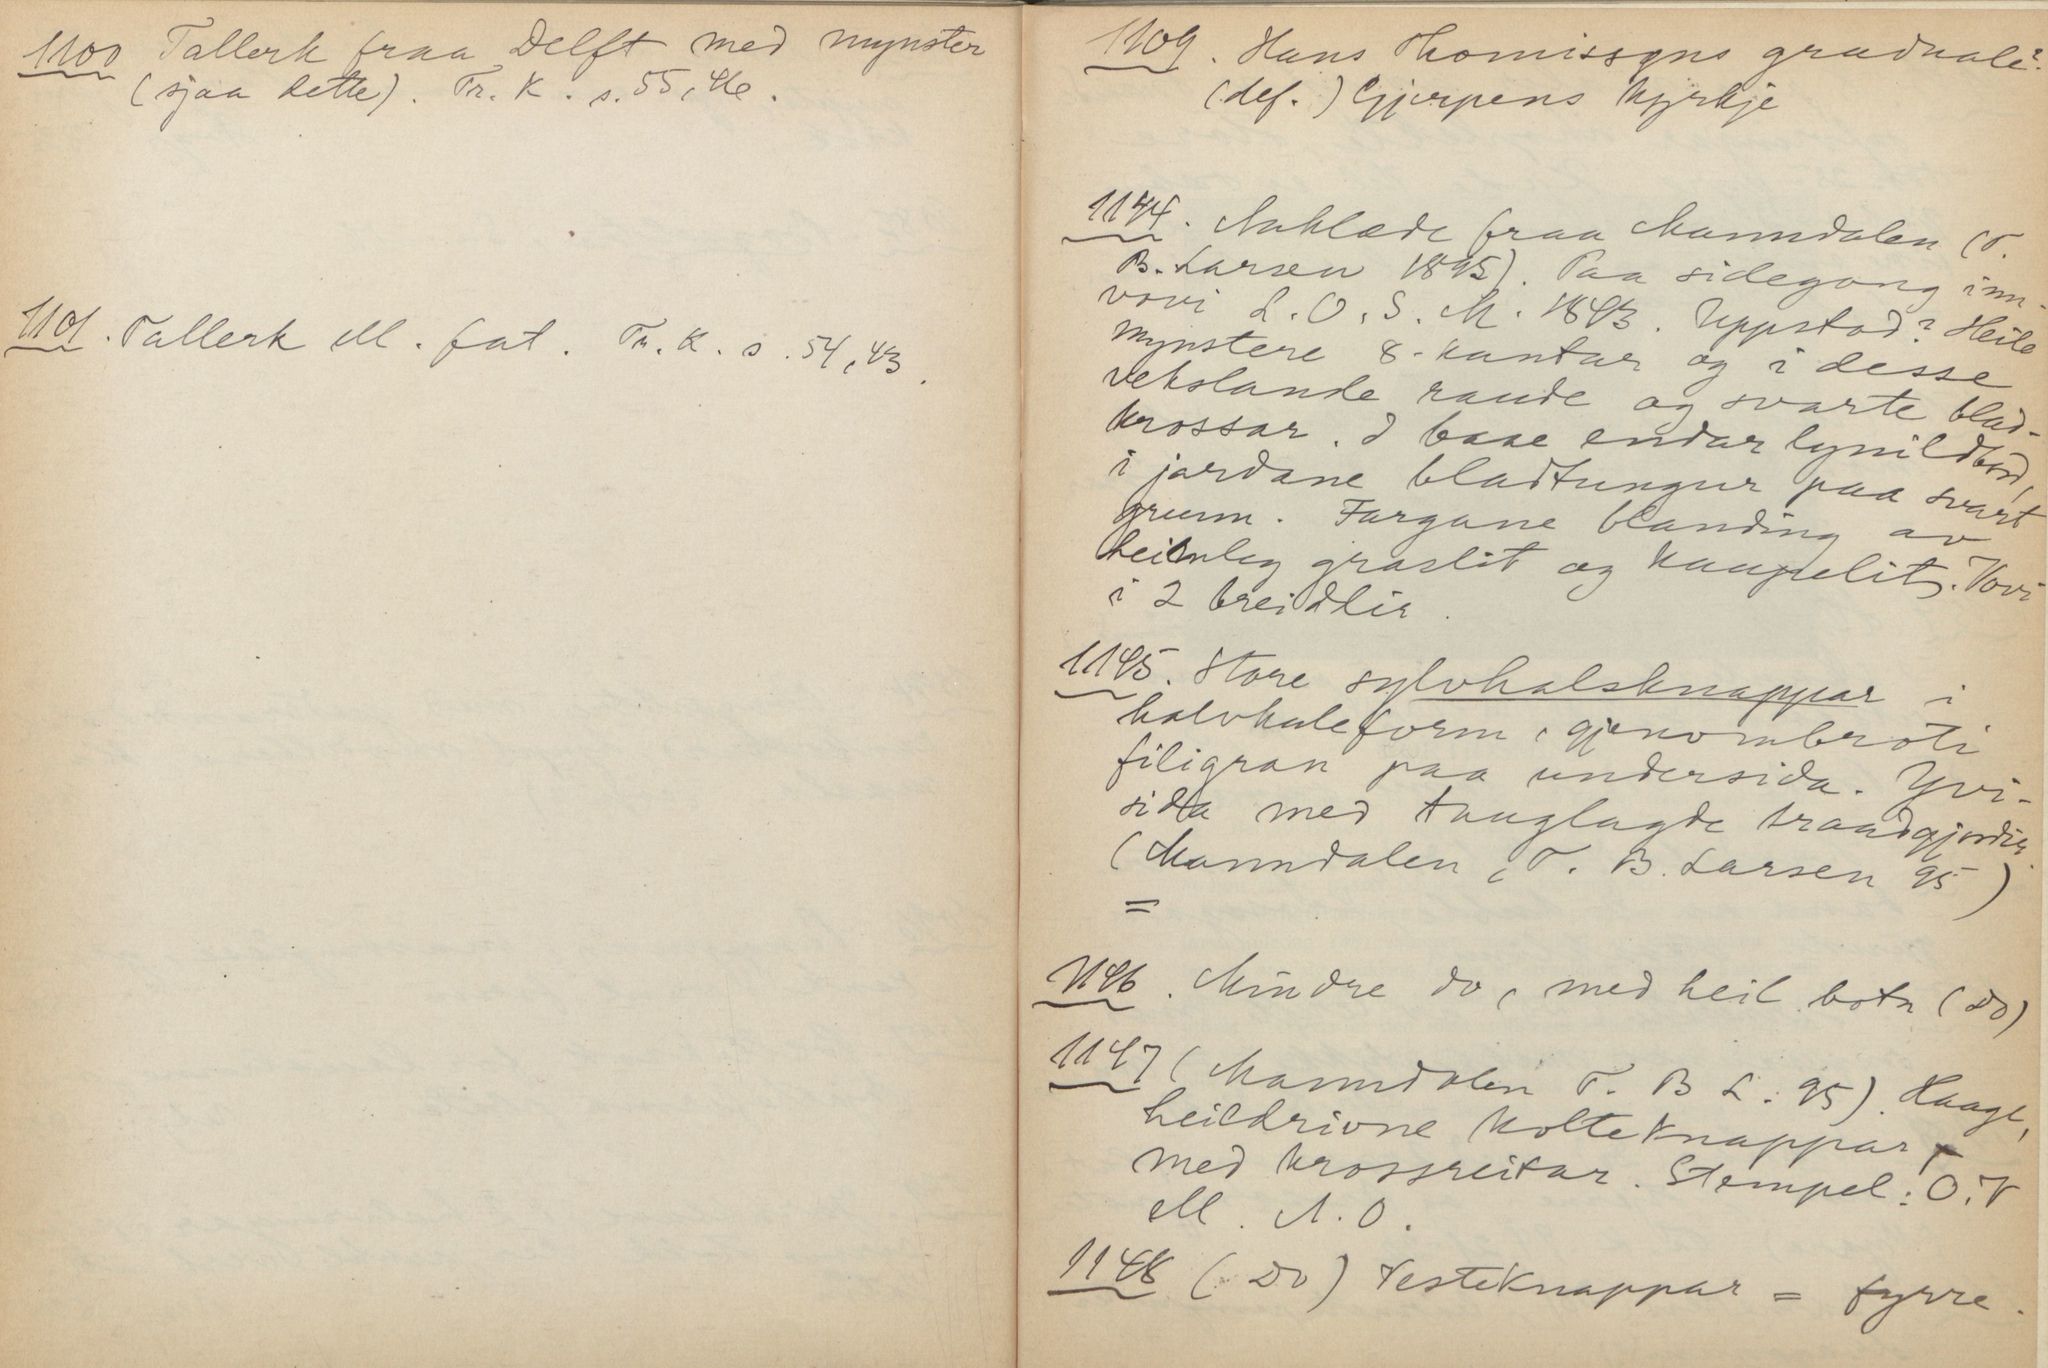 1100 Tallerk fraa Delft med mynster
(sjaa dette). Tr. K. s. 55, 46.
1101. Tallerk ell. fat. Tr. K. s. 54, 43.
1109. Hans Thomissøns graduale?
(def.) Gjerpens kyrkje
1144. Aaklæde fraa Manndalen (T.
B. Larsen 1895). Paa sidegong inn-
vovi L. O. S. M. 1843. Uppstad? Heile
mynstere 8-kantar og i desse
vekslande raude og svarte blad-
krossar. I baae endar lynildbord,
i jardane bladtungur paa svart
grunn. Fargane blanding av
heimleg graslit og kaupelit. Vovi
i 2 breidlir.
1145. Store sylvhalsknappar i
halvkuleform, gjenombroti
filigran paa undersida. Yvi-
sida med tauglagde traadgjordir.
(Manndalen, T. B. Larsen 95)
=
1146. Mindre do, med heil botn (do)
1147 (Manndalen T. B L. 95). Haage,
heildrivne kolteknappar,
med krossreitar. Stempel: O. V
ell. A. O.
1148 (Do) Vesteknappar = fyrre.